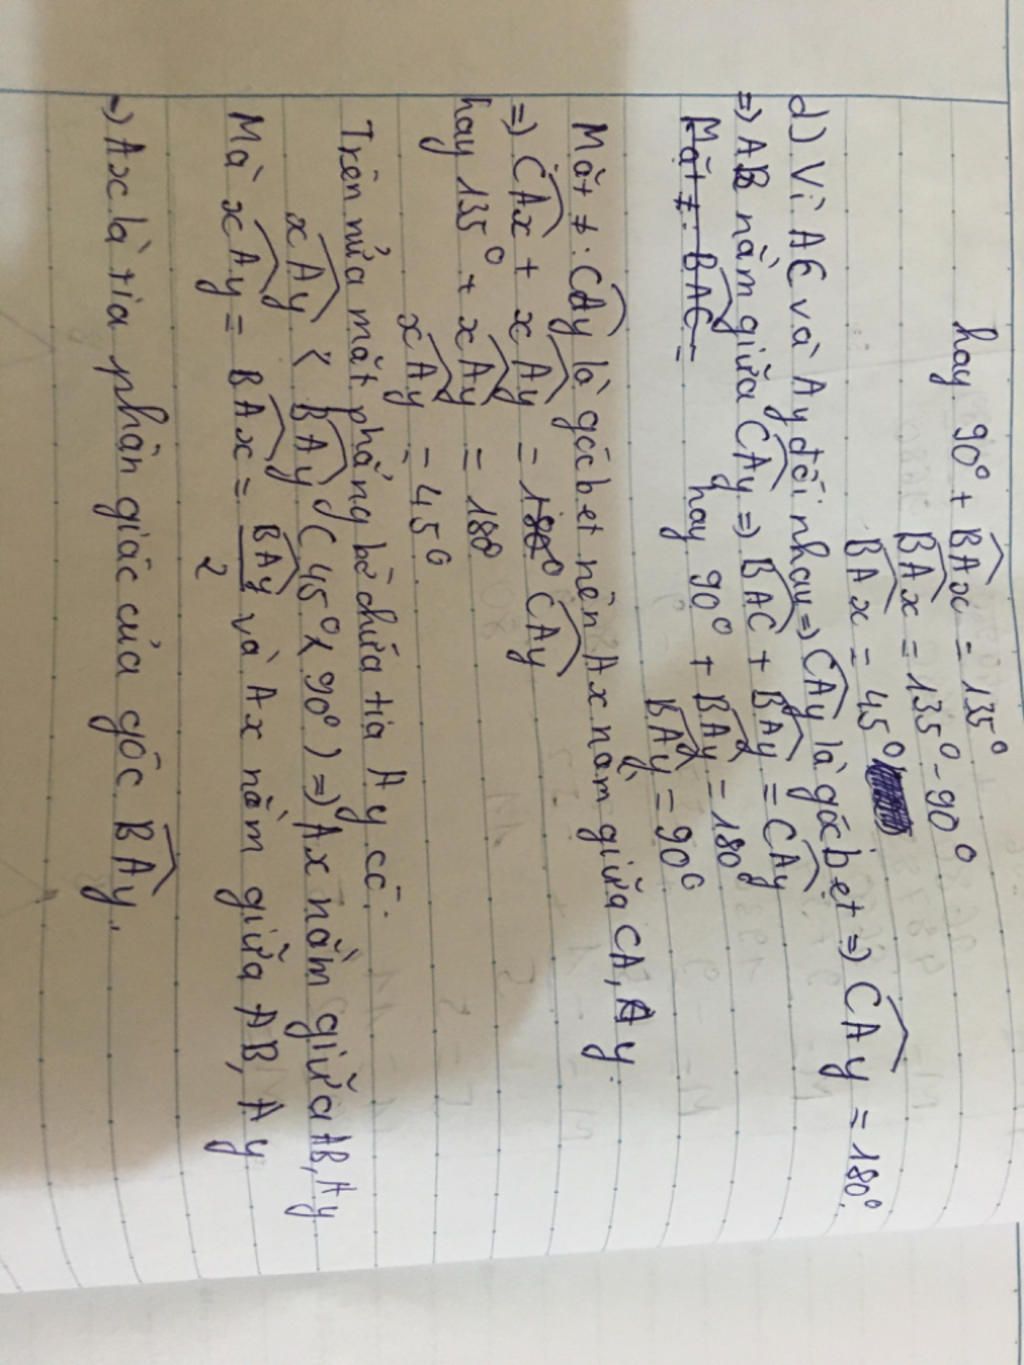 hay 90° + BAx = 135°
BAx = 135° - 90°
BAx = 45°
d) Vì AC và Ay đối nhau => CAy là góc bẹt => CAy = 180°.
=> AB nằm giữa CAy => BAC + BAy = CAy
Mặt ≠: BAC = hay 90° + BAy = 180°
BAy = 90°
Mặt ≠: CAy là góc bẹt nên Ax nằm giữa CA, Ay.
=> CAx + xAy = 180° CAy
hay 135° + xAy = 180°
xAy = 45°
Trên nửa mặt phẳng bờ chứa tia Ay có:
xAy < BAy (45° < 90°) => Ax nằm giữa AB, Ay
Mà xAy = BAx = BAy/2 và Ax nằm giữa AB, Ay
=> Ax là tia phân giác của góc BAy.